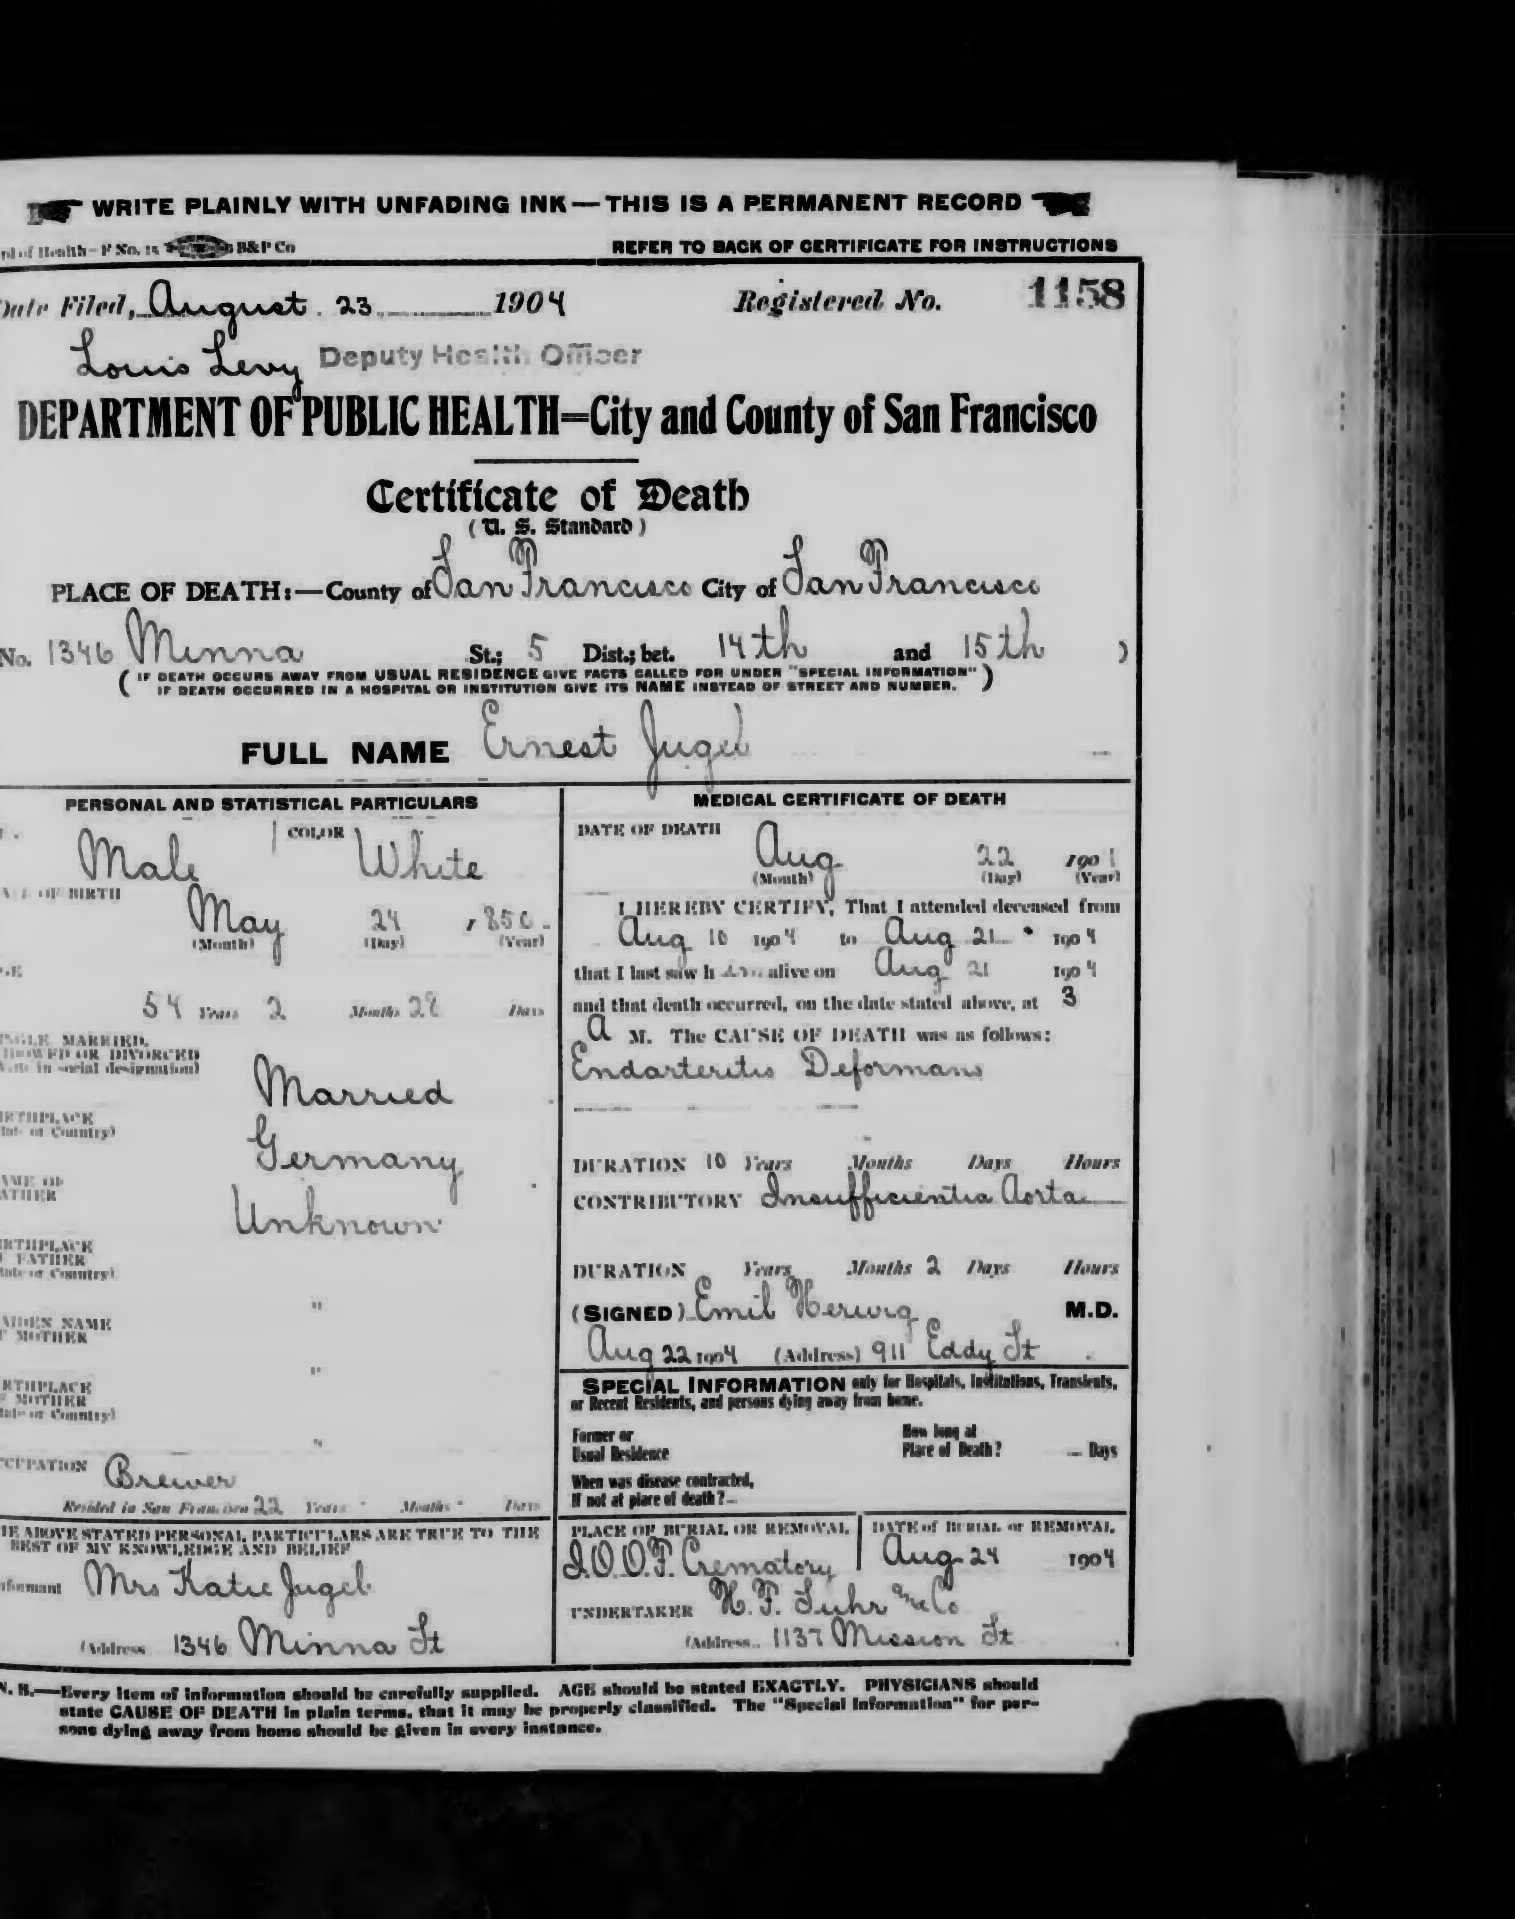 WRITE PLAINLY WITH UNFADING INK — THIS IS A PERMANENT RECORD
of Health—F No. 15 B&P Co REFER TO BACK OF CERTIFICATE FOR INSTRUCTIONS
Date Filed, August 23 1904 Registered No. 1158
Louis Levy Deputy Health Officer
DEPARTMENT OF PUBLIC HEALTH=City and County of San Francisco
Certificate of Death
(U. S. Standard)
PLACE OF DEATH:—County of San Francisco City of San Francisco
No. 1346 Minna St.; 5 Dist.; bet. 14th and 15th )
( IF DEATH OCCURS AWAY FROM USUAL RESIDENCE GIVE FACTS CALLED FOR UNDER "SPECIAL INFORMATION" )
IF DEATH OCCURRED IN A HOSPITAL OR INSTITUTION GIVE ITS NAME INSTEAD OF STREET AND NUMBER.
FULL NAME Ernest Jugel
PERSONAL AND STATISTICAL PARTICULARS
COLOR
Male White
OF BIRTH
May 24 1850
(Month) (Day) (Year)
GE
54 Years 2 Months 28 Days
INGLE, MARRIED,
IDOWED OR DIVORCED
in social designation)
Married
IRTHPLACE
or Country)
Germany
AME OF
ATHER
Unknown
IRTHPLACE
FATHER
or Country)
"
AIDEN NAME
F MOTHER
"
RTHPLACE
F MOTHER
or Country)
"
CCUPATION Brewer
Resided in San Francisco 22 Years - Months - Days
HE ABOVE STATED PERSONAL PARTICULARS ARE TRUE TO THE
BEST OF MY KNOWLEDGE AND BELIEF
nformant Mrs Katie Jugel
(Address 1346 Minna St
MEDICAL CERTIFICATE OF DEATH
DATE OF DEATH
Aug 22 190
(Month) (Day) (Year)
I HEREBY CERTIFY, That I attended deceased from
Aug 10 1904 to Aug 21 1904
that I last saw h im alive on Aug 21 1904
and that death occurred, on the date stated above, at 3
A M. The CAUSE OF DEATH was as follows:
Endarteritis Deformans
DURATION 10 Years Months Days Hours
CONTRIBUTORY Insufficientia Aorta
DURATION Years Months 2 Days Hours
(SIGNED) Emil Herwig M.D.
Aug 22 1904 (Address) 911 Eddy St
SPECIAL INFORMATION only for Hospitals, Institutions, Transients,
or Recent Residents, and persons dying away from home.
Former or
Usual Residence
How long at
Place of Death? — Days
When was disease contracted,
If not at place of death?—
PLACE OF BURIAL OR REMOVAL
I.O.O.F. Crematory
DATE of BURIAL or REMOVAL
Aug 24 1904
UNDERTAKER H. F. Suhr and Co
(Address.. 1137 Mission St
N. B.—Every item of information should be carefully supplied. AGE should be stated EXACTLY. PHYSICIANS should
state CAUSE OF DEATH in plain terms, that it may be properly classified. The "Special Information" for per-
sons dying away from home should be given in every instance.